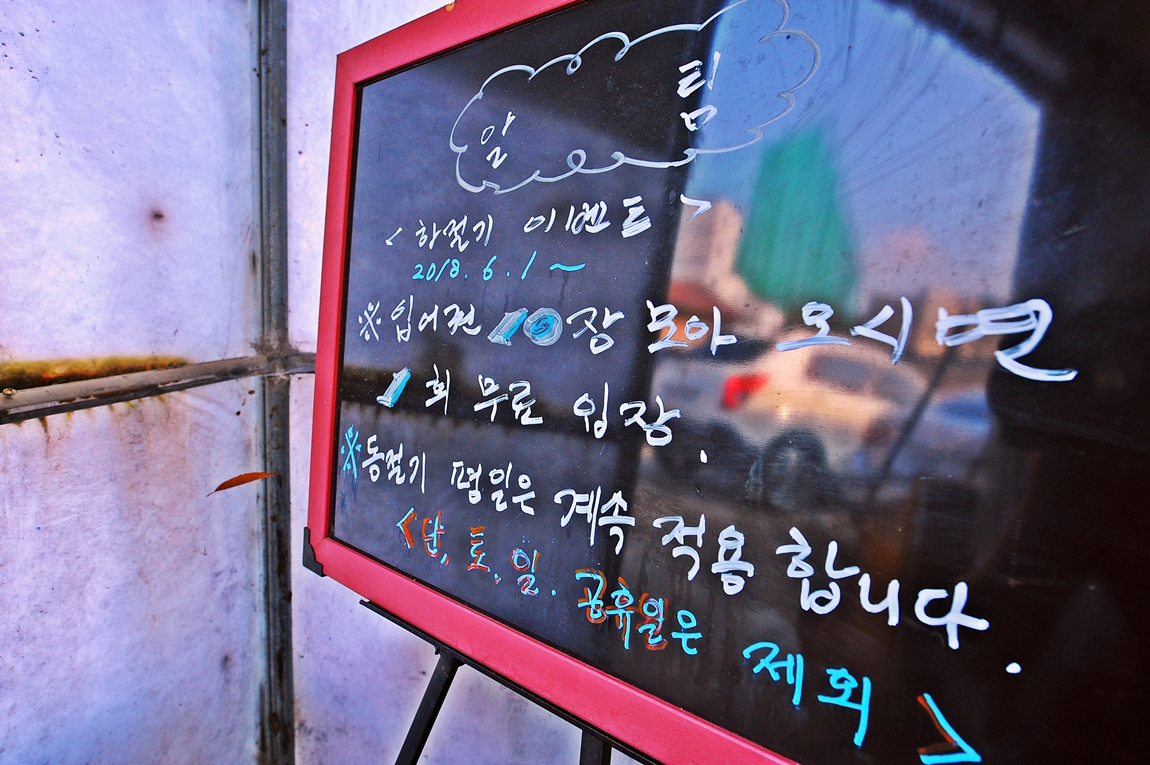 알 림
<하절기 이벤트>
2018. 6. 1 ~
※입어전 10장 모아 오시면
1회 무료 입장.
※동절기 평일은 계속 적용합니다.
<단, 토, 일. 공휴일은 제회>